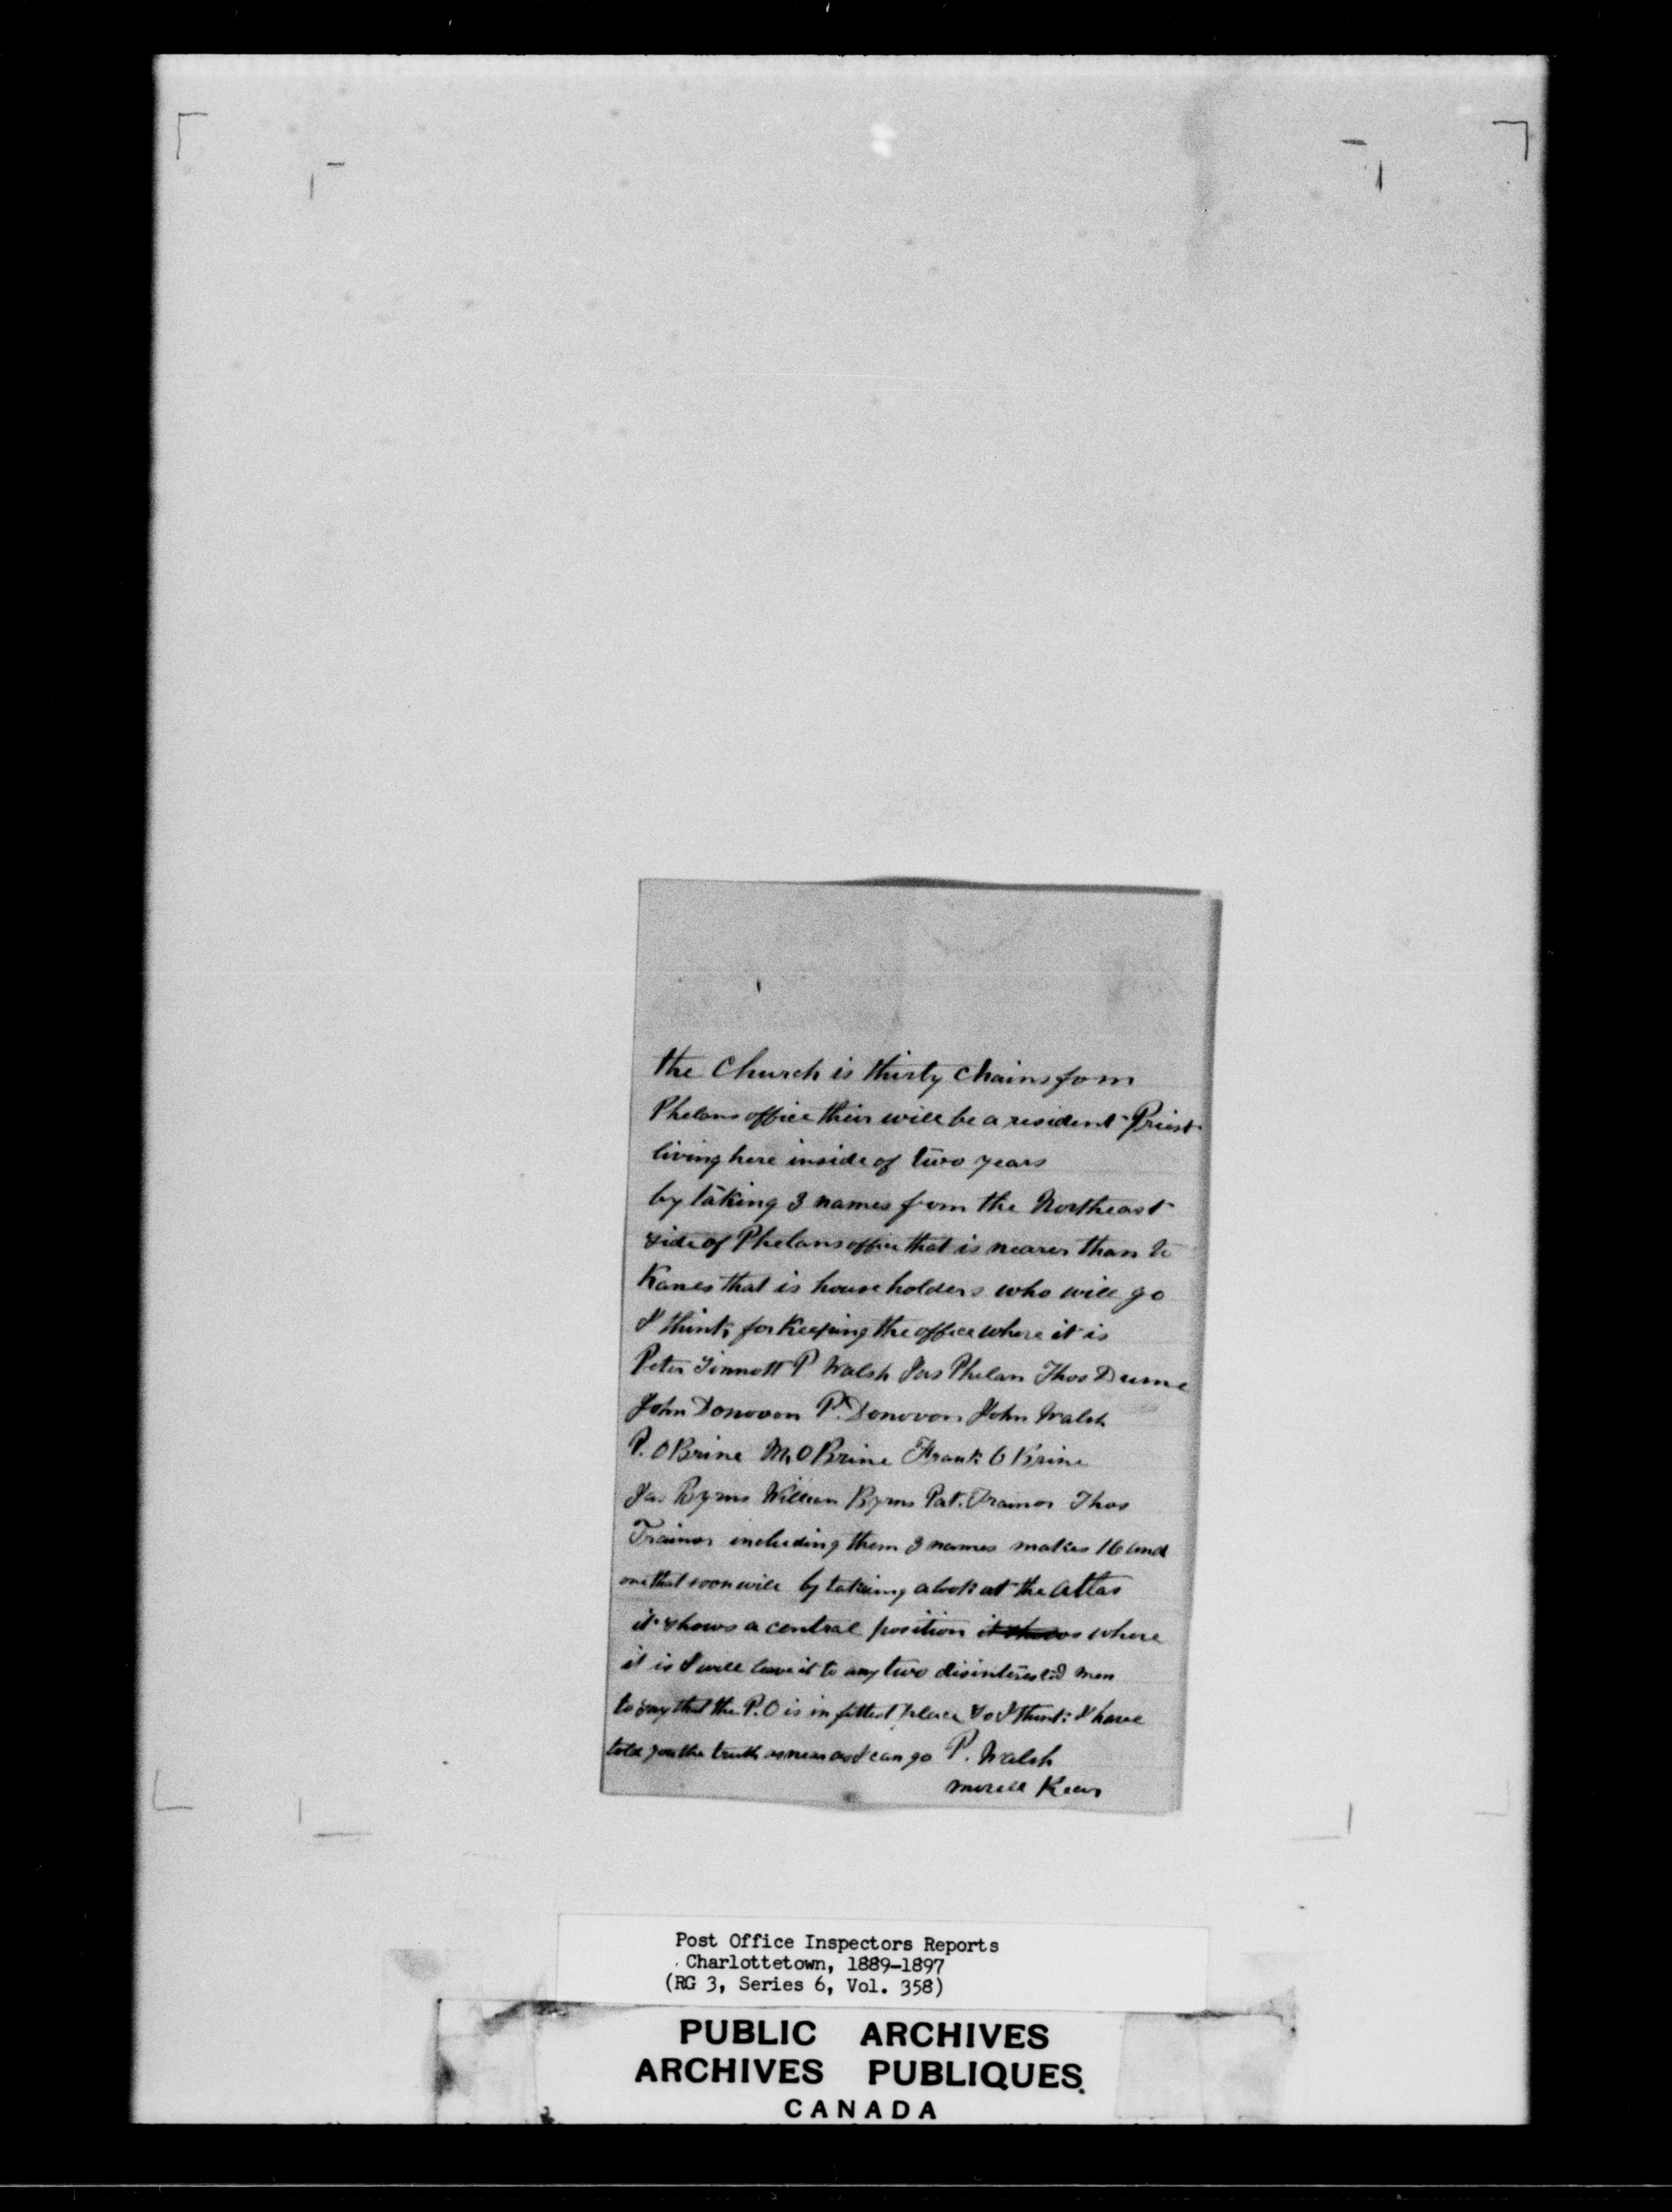 the Church is thirty Chains fom
Phelans office their will be a resident Priest
living here inside of two years
by taking 3 names from the Northeast
side of Phelans office that is nearer than to
Kanes that is householders who will go
I think for Keeping the office where it is
Peter Sinnott P Walsh Jas Phelan Thos Dunne
John Donovon P. Donovon John Walsh
P. OBrine M. OBrine Frank OBrine
Jas Byrns William Byrns Pat. Tramor Thos
Trainor including them 3 names makes 16 and
one that soon will by takeing a look at the atlas
it shows a central position it shows where
it is I will leave it to any two disinterested men
to say that the P.O is in fittest place So I think I have
told you the truth as near as I can go P. Walsh
Morell Rear
Post Office Inspectors Reports
Charlottetown, 1889-1897
(RG 3, Series 6, Vol. 358)
PUBLIC ARCHIVES
ARCHIVES PUBLIQUES
CANADA